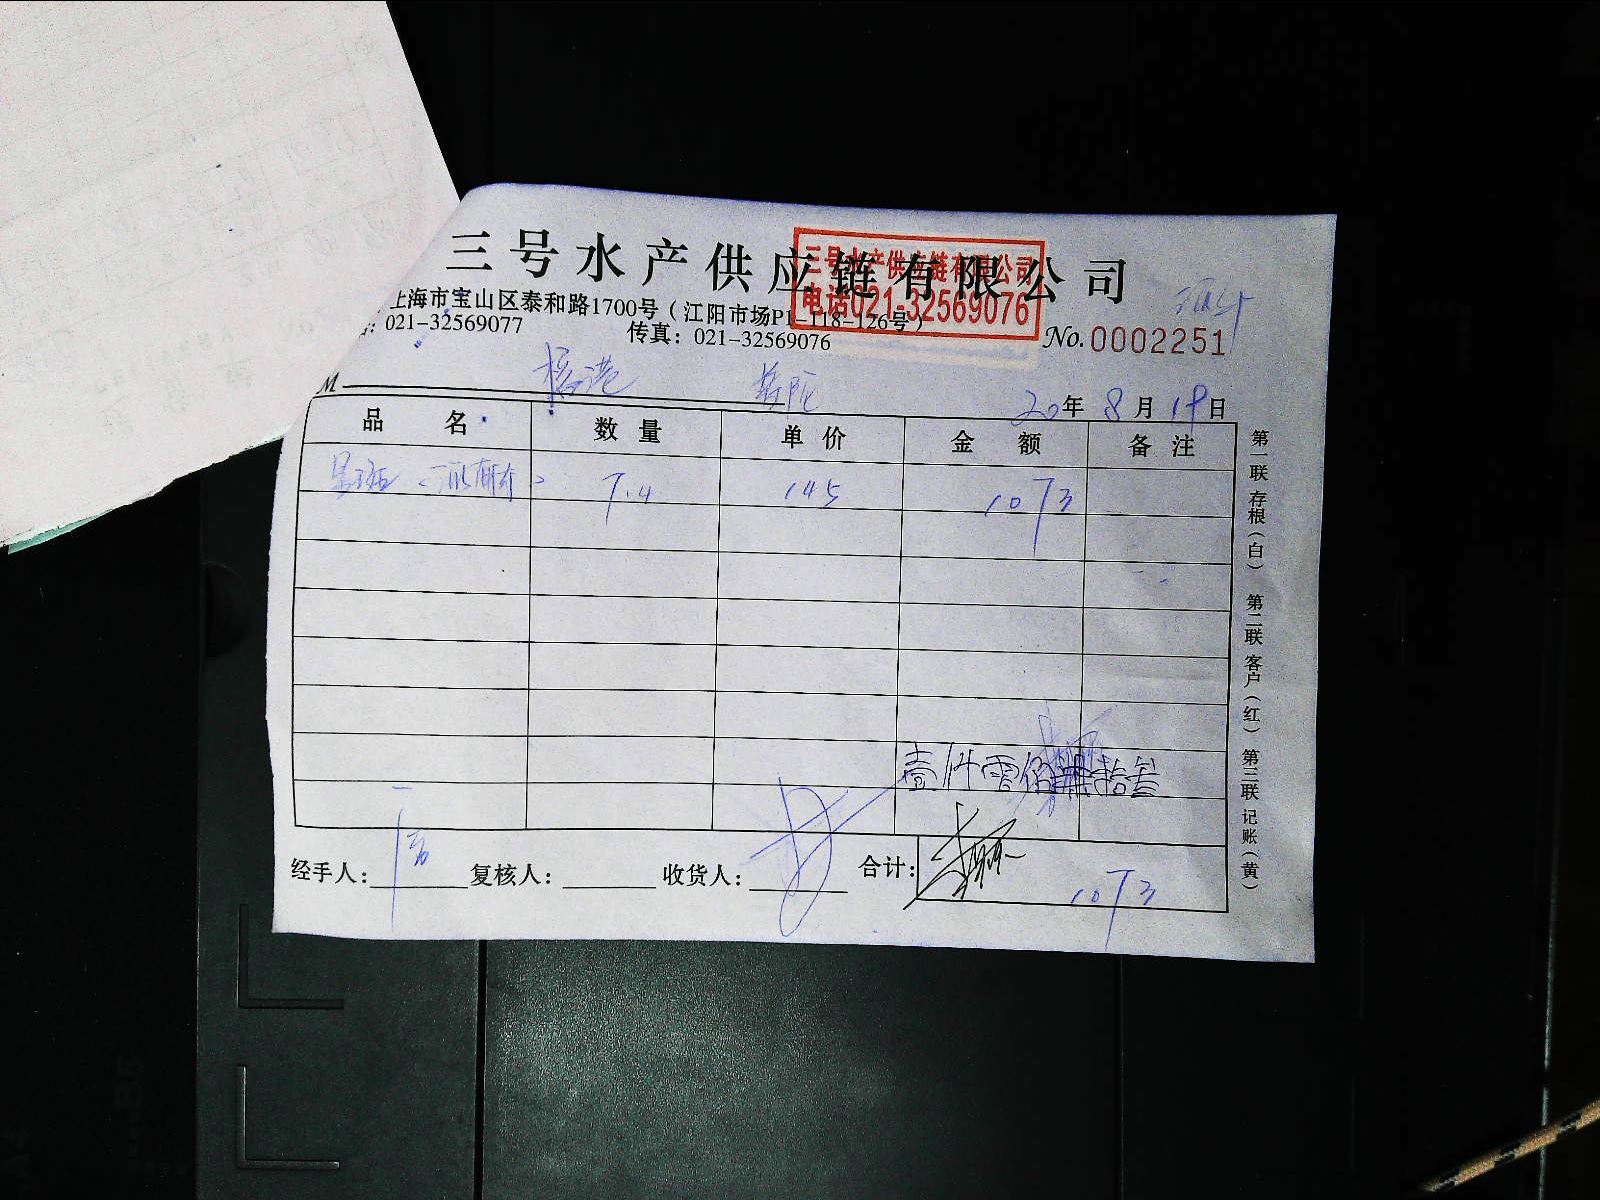 三号水产供应链有限公司
三号水产供应链有限公司
电话021-32569076
上海市宝山区泰和路1700号（江阳市场P1-118-126号）
021-32569077 传真：021-32569076
No.0002251
M
20年8月19日
品名 数量 单价 金额 备注
7.4 145 1073
壹仟零佰柒拾叁
经手人： 复核人： 收货人： 合计： 1073
第一联 存根（白） 第二联 客户（红） 第三联 记账（黄）